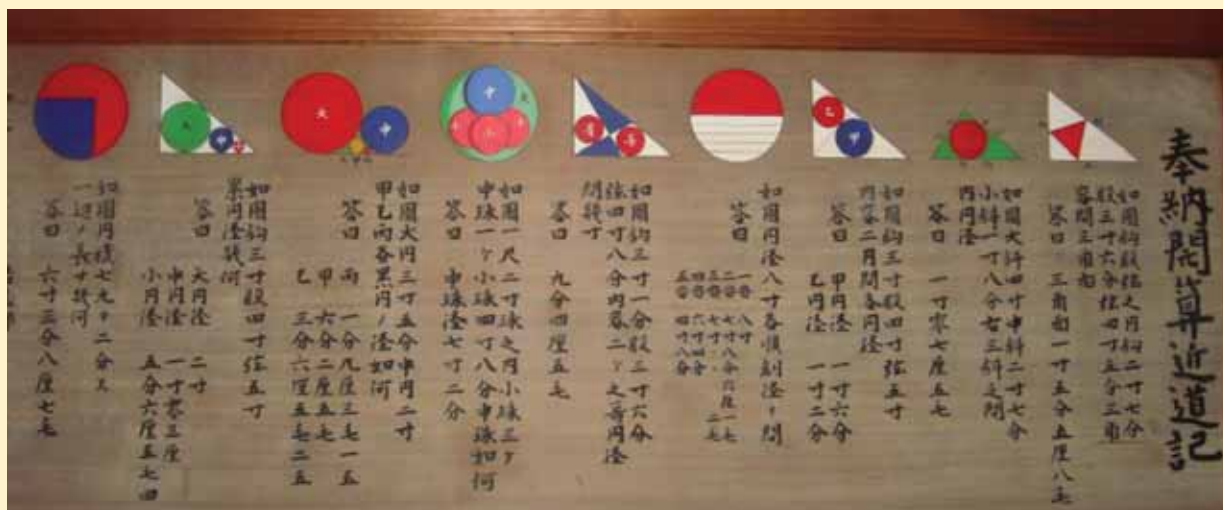 奉納開算近道記
如圖鈎股弦之内鈎二寸七分
股三寸六分弦四寸五分三角
容問三角面
答曰 三角面一寸五分五厘八毛
如圖大斜四寸中斜二寸七分
小斜一寸八分右三斜之間
内円径
答曰 一寸零七厘五毛
如圖鈎三寸股四寸弦五寸
内容二円問各円径
答曰 甲円径 一寸六分
乙円径 一寸二分
如圖円径八寸各順割径ヲ問
答曰
一番 八寸
二番 七寸八分
三番 七寸
四番 六寸四分
五番 四寸八分
如圖鈎三寸一分股三寸六分
弦四寸八分内容二ヶ之等円径
問幾寸
答曰 九分四厘五毛
如圖一尺二寸球之内小球三ヶ
中球一ヶ小球四寸八分中球如何
答曰 中球径七寸二分
如圖大円三寸五分中円二寸
甲乙丙各累円ノ径如何
答曰 丙 一分九厘三毛一五
甲 六分二厘五毛
乙 三分六厘五毛二五
如圖鈎三寸股四寸弦五寸
累円径幾何
答曰 大円径 二寸
中円径 一寸零三厘
小円径 五分六厘五毛四
如圖円積七九ヶ二分又
一辺ノ長サ幾何
答曰 六寸三分八厘七毛